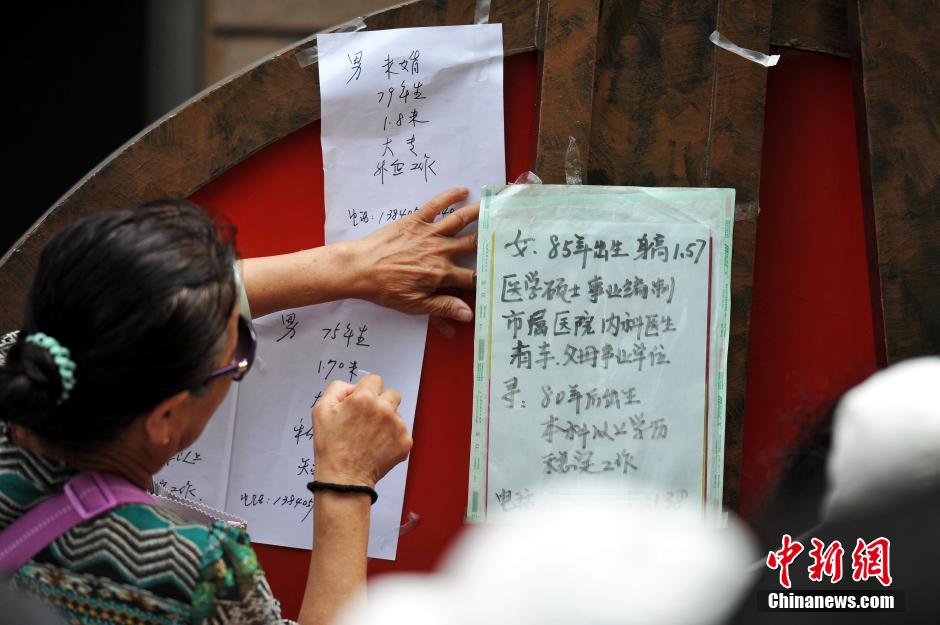 男 未婚
79年生
1.8米
大专
外企工作
电话:13840
男 75年生
1.70米
大
电话:138405
女. 85年出生 身高1.57
医学硕士 事业编制
市属医院 内科医生
有车.父母事业单位
寻: 80年后出生
本科以上学历
稳定工作
电话 138
中新网
Chinanews.com